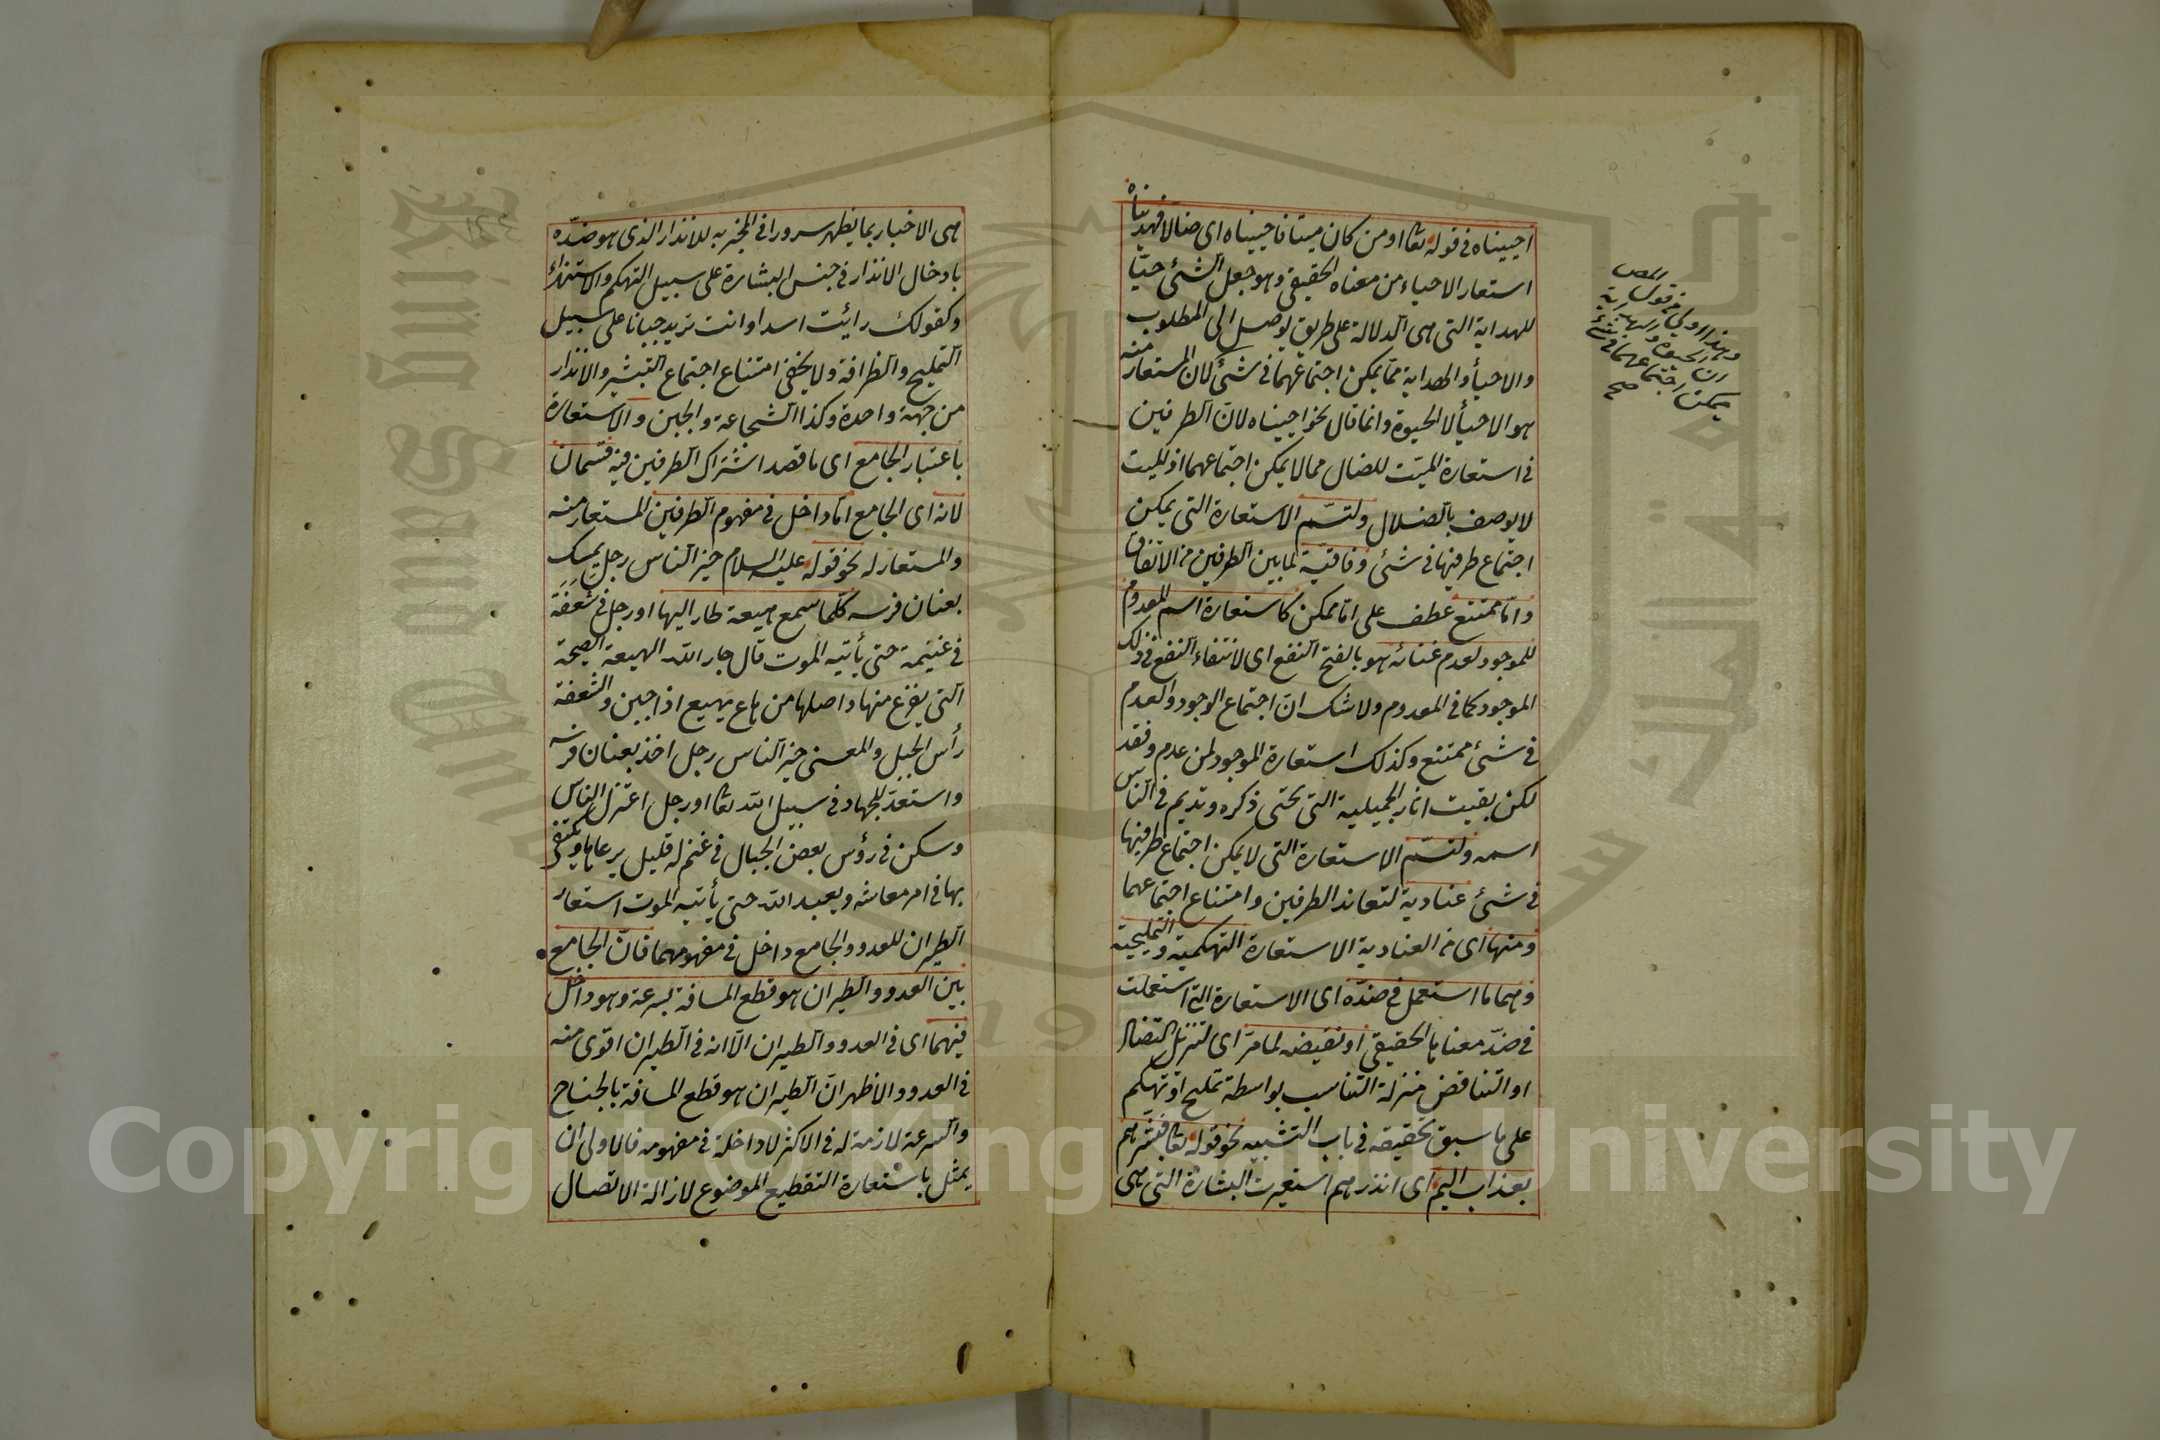 احييناه فى قوله تعا او من كان ميتا فاحييناه اى ضالا فهديناه
استعار الاحياء من معناه الحقيقى وهو جعل الشئ حيّا
للهداية التى هى الدلالة على طريق يوصل الى المطلوب
والاحيأ والهداية ممّا يمكن اجتماعهما فى شئ لان المستعار منه
هو الاحيأ لا الحيوة وانما قال نحو احييناه لانّ الطرفين
فى استعارة الميّت للضال مما لا يمكن اجتماعهما اذ الميت
لا يوصف بالضلال ولتسّم الاستعارة التى يمكن
اجتماع طرفيها فى شئ وفاقيّة لما بين الطرفين من الاتّفاق
وامّا ممتنع عطف على امّا ممكن كاستعارة اسم المعدوم
للموجود لعدم غنائه هو بالفتح النفع اى لانتفاء النفع فى ذلك
الموجود كما فى المعدوم ولا شك انّ اجتماع الوجود والعدم
فى شئ ممتنع وكذلك استعارة الموجود لمن عدم وفقد
لكن بقيت اثاره الجميلية التى تحيى ذكره وتديم فى الناس
اسمه ولتسّم الاستعارة التى لا يمكن اجتماع طرفيها
فى شئ عنادية لتعاند الطرفين وامتناع اجتماعهما
ومنها اى من العنادية الاستعارة التهكمية والتمليحية
وهما ما استعمل فى ضدّه اى الاستعارة التى استعملت
فى ضدّ معناها الحقيقى او نقيضه لما مرّ اى لتنزيل التضاد
او التناقض منزلة التناسب بواسطة تمليح او تهكم
على ما سبق تحقيقه فى باب التشبيه نحو قوله تعا فبشّرهم
بعذاب اليم اى انذرهم استعيرت البشارة التى هى
المص
وهذا اولى من قول
ان الحيوة والهداية
يمكن اجتماعهما فى شئ
صح
هى الاخبار بما يظهر سرورا فى المخبر به للانذار الذى هو ضدّه
بادخال الانذار فى جنس البشارة على سبيل التهكم والاستهزاء
وكقولك رائت اسدا وانت تريد جبانا على سبيل
التمليح والظرافة ولا يخفى امتناع اجتماع التبشير والانذار
من جهة واحدة وكذا الشجاعة والجبن والاستعارة
باعتبار الجامع اى ما قصد اشتراك الطرفين فيه قسمان
لانه اى الجامع امّا داخل فى مفهوم الطرفين المستعار منه
والمستعار له نحو قوله عليه السلام خير الناس رجل يمسك
بعنان فرسه كلّما سمع هيعة طار اليها او رجل فى شعفة
فى غنيمة حتى يأتيه الموت قال جار الله الهيعة الصيحة
التى يفزع منها واصلها من هاع يهيع اذا جبن والشعفة
رأس الجبل والمعنى خير الناس رجل اخذ بعنان فرسه
واستعدّ للجهاد فى سبيل الله تعا او رجل اعتزل الناس
وسكن فى رؤس بعض الجبال فى غنم له قليل يرعاها ويكتفى
بها فى امر معاشه ويعبد الله حتى يأتيه الموت استعار
الطيران للعدو والجامع داخل فى مفهومهما فانّ الجامع
بين العدو والطيران هو قطع المسافة بسرعة وهو داخل
فيهما اى فى العدو والطيران الّا انه فى الطيران اقوى منه
فى العدو والاظهر انّ الطيران هو قطع المسافة بالجناح
والسرعة لازمة له فى الاكثر لا داخلة فى مفهومه فالاولى ان
يمثل باستعارة التقطيع الموضوع لازالة الاتصال